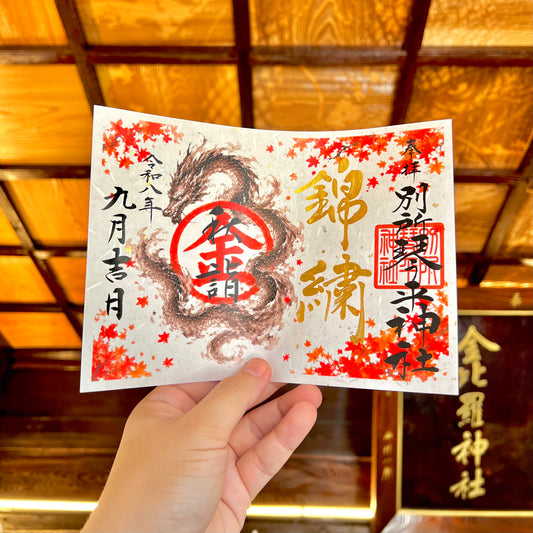 奉拝
別所琴平神社
錦繍
秋詣
令和八年
九月吉日
金比羅神社